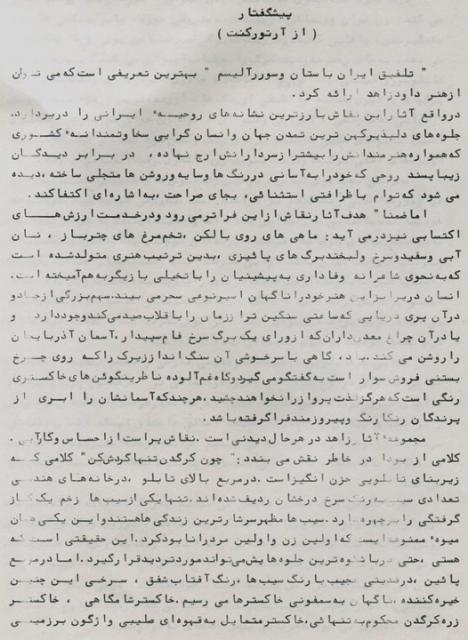 پیشگفتار
( از آرتورکنت )
" تلفیق ایران باستان وسوررآلیسم " بهترین تعریفی است که می توان
ازهنر داودزاهد ارائه کرد.
درواقع آثاراین نقاش بارزترین نشانه‌های روحیهء ایرانی را دربردارد.
جلوه‌های دلپذیرکهن ترین تمدن جهان وانسان گرایی سخاوتمندانهء کشوری
که همواره هنرمندانش رابیشترازسردارانش ارج نهاده، در برابر دیدگان
زیباپسند روحی که خودرابه آسانی دررنگ‌ها وسایه وروشن ها متجلی ساخته،دیده
می شود که توام باظرافتی استثنائی، بجای صراحت ،به اشاره‌ای اکتفا کند.
اما ضمنا" هدف آثار نقاش ازاین فراترمی رود ودرخدمت ارزش هـــای
اکتسابی نیزدرمی آید: ماهی های روی بالکن ،تخم مرغ های چترباز ، نـان
آبی وسفیدوسرخ ولبخندبرگ‌های پائیزی ،بدین ترتیب هنری متولدشده است
که به نحوی شاعرانه وفاداری به پیشینیان راباتخیلی بازیگربه هم آمیخته است.
انسان دربرابراین هنرخودراناگهان اسیرنوعی سحرمی بیند،سهم بزرگی ازجادو
درآن پری دریایی که ساعتی سنگین تر اززمان راباقلاب صیدمی کندوجوددارد، و
یادرآن چراغ معدنچیاران که ازورای یک برگ سرخ فام سپیدار،آسمان آذربایجان
را روشن می کند.باد، گاهی باسرخوشی آن سنگ انداززیرک راکــه روی چــرخ
بستنی فروش سوار است به گفتگومی گیردوگاه غم آلوده ناظرینگوئن‌های خاکستری
رنگی است که هرگزلذت پروازرانخواهندچشید،هرچندکه آسمانشان را ابری از
پرندگان رنگارنگ وپیروزمندفراگرفته باشد.
مجموعهء آثار زاهد در هرحال دیدنی است .نقاش پراست ازاحساس وکارآیی.
کلامی از بودا در خاطر نقش می بندد:" چون کرگدن تنهاگردش کن" کلامی کــه
زیربنای تابلویی حزن انگیزاست .درمربع بالای تابلو ،درخانه‌های هندسی
تعدادی سیب به رنگ سرخ درخشان ردیف شده‌اند.تنهایکی ازسیب‌ها زخم یک گاز
گرفتگی رابرچهره دارد.سیب‌ها مظهرسرشارترین زندگی هاهستندواین یکی همان
میوهء ممنوعه است که اولین زن واولین مردرانابودکرد.این حقیقتی است که
هستی ،حتی درباشکوه ترین جلوه‌هایش می‌تواند موردتردیدقرارگیرد.امادرمربع
پائین ،درقدیتی عجیب بارنگ سیب‌ها،رنگ آفتاب شفق ، سرخی این چنین
خیره‌کننده ،ناگهان به سمفونی خاکسترها می رسیم .خاکسترشامگاهی ، خاکستر
زره کرگدن محکوم به تنهائی،خاکسترمتمایل به قهوه‌ای طلیبی واژگون برزمینی